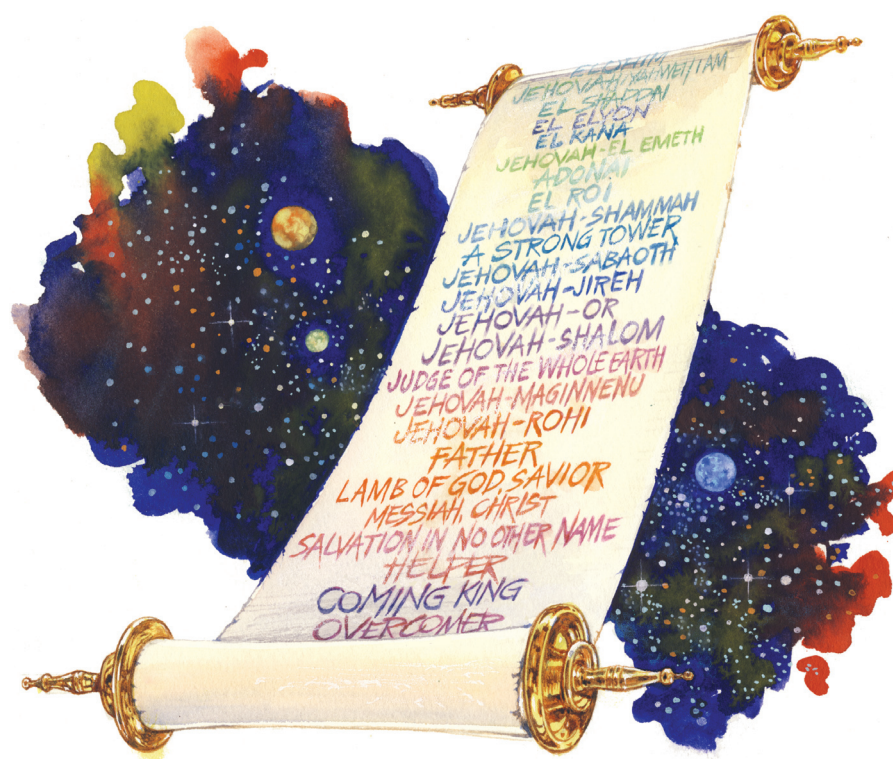 ELOHIM
JEHOVAH/YAHWEH/I AM
EL SHADDAI
EL ELYON
EL KANA
JEHOVAH-EL EMETH
ADONAI
EL ROI
JEHOVAH-SHAMMAH
A STRONG TOWER
JEHOVAH-SABAOTH
JEHOVAH-JIREH
JEHOVAH-OR
JEHOVAH-SHALOM
JUDGE OF THE WHOLE EARTH
JEHOVAH-MAGINNENU
JEHOVAH-ROHI
FATHER
LAMB OF GOD, SAVIOR
MESSIAH, CHRIST
SALVATION IN NO OTHER NAME
HELPER
COMING KING
OVERCOMER